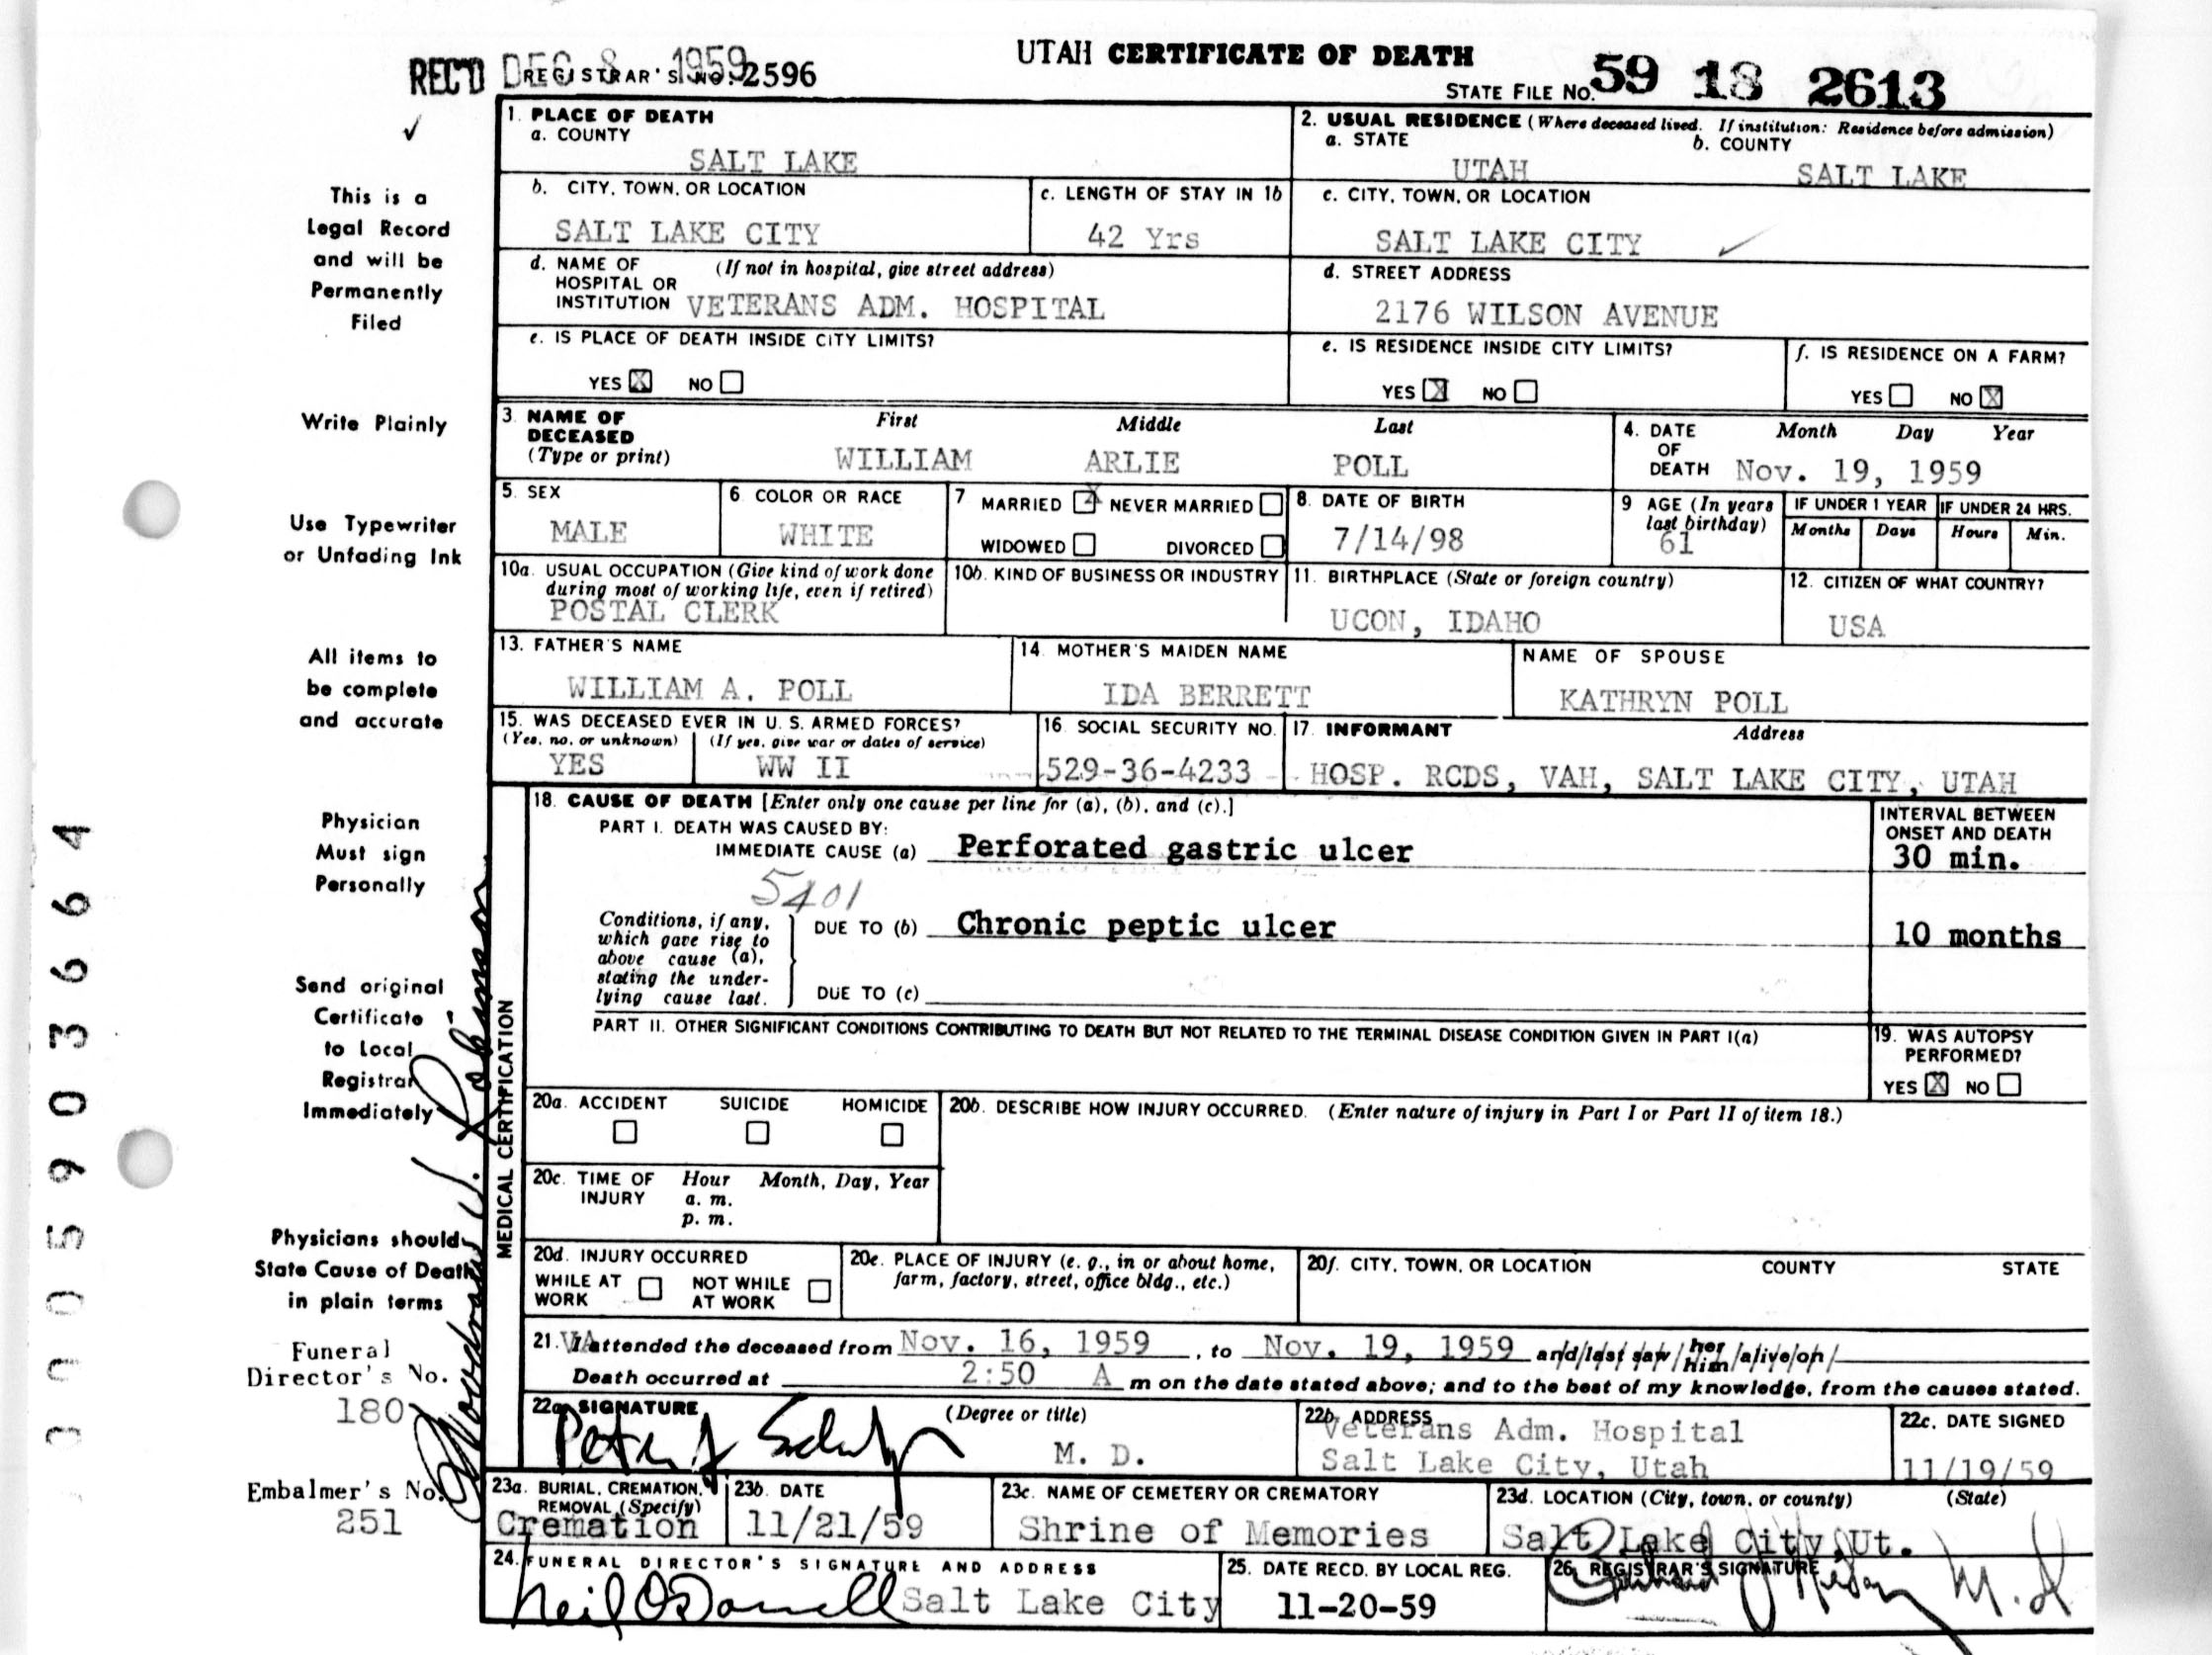 UTAH CERTIFICATE OF DEATH
REC'D DEC 8 1959 REGISTRAR'S NO. 2596
STATE FILE NO. 59 18 2613
✓
This is a
Legal Record
and will be
Permanently
Filed
Write Plainly
Use Typewriter
or Unfading Ink
All items to
be complete
and accurate
Physician
Must sign
Personally
Send original
Certificate
to Local
Registrar
Immediately
Physicians should
State Cause of Death
in plain terms
Funeral
Director's No.
180
Embalmer's No.
251
1. PLACE OF DEATH
a. COUNTY
SALT LAKE
2. USUAL RESIDENCE (Where deceased lived. If institution: Residence before admission)
a. STATE b. COUNTY
UTAH SALT LAKE
b. CITY, TOWN, OR LOCATION
SALT LAKE CITY
c. LENGTH OF STAY IN 1b
42 Yrs
c. CITY, TOWN, OR LOCATION
SALT LAKE CITY ✓
d. NAME OF (If not in hospital, give street address)
HOSPITAL OR
INSTITUTION VETERANS ADM. HOSPITAL
d. STREET ADDRESS
2176 WILSON AVENUE
e. IS PLACE OF DEATH INSIDE CITY LIMITS?
YES ☒ NO ☐
e. IS RESIDENCE INSIDE CITY LIMITS?
YES ☒ NO ☐
f. IS RESIDENCE ON A FARM?
YES ☐ NO ☒
3. NAME OF First Middle Last
DECEASED
(Type or print) WILLIAM ARLIE POLL
4. DATE Month Day Year
OF
DEATH Nov. 19, 1959
5. SEX
MALE
6. COLOR OR RACE
WHITE
7 MARRIED ☒ NEVER MARRIED ☐
WIDOWED ☐ DIVORCED ☐
8. DATE OF BIRTH
7/14/98
9 AGE (In years
last birthday)
61
IF UNDER 1 YEAR
Months Days
IF UNDER 24 HRS.
Hours Min.
10a. USUAL OCCUPATION (Give kind of work done
during most of working life, even if retired)
POSTAL CLERK
10b. KIND OF BUSINESS OR INDUSTRY
11. BIRTHPLACE (State or foreign country)
UCON, IDAHO
12. CITIZEN OF WHAT COUNTRY?
USA
13. FATHER'S NAME
WILLIAM A. POLL
14. MOTHER'S MAIDEN NAME
IDA BERRETT
NAME OF SPOUSE
KATHRYN POLL
15. WAS DECEASED EVER IN U. S. ARMED FORCES?
(Yes, no, or unknown) (If yes, give war or dates of service)
YES WW II
16. SOCIAL SECURITY NO.
529-36-4233
17. INFORMANT Address
HOSP. RCDS, VAH, SALT LAKE CITY, UTAH
MEDICAL CERTIFICATION
18. CAUSE OF DEATH [Enter only one cause per line for (a), (b), and (c).]
PART I. DEATH WAS CAUSED BY:
IMMEDIATE CAUSE (a) Perforated gastric ulcer
INTERVAL BETWEEN
ONSET AND DEATH
30 min.
5401
Conditions, if any,
which gave rise to
above cause (a),
stating the under-
lying cause last.
DUE TO (b) Chronic peptic ulcer
10 months
DUE TO (c)
PART II. OTHER SIGNIFICANT CONDITIONS CONTRIBUTING TO DEATH BUT NOT RELATED TO THE TERMINAL DISEASE CONDITION GIVEN IN PART I(a)
19. WAS AUTOPSY
PERFORMED?
YES ☒ NO ☐
20a. ACCIDENT SUICIDE HOMICIDE
☐ ☐ ☐
20b. DESCRIBE HOW INJURY OCCURRED. (Enter nature of injury in Part I or Part II of item 18.)
20c. TIME OF Hour Month, Day, Year
INJURY a. m.
p. m.
20d. INJURY OCCURRED
WHILE AT ☐ NOT WHILE ☐
WORK AT WORK
20e. PLACE OF INJURY (e. g., in or about home,
farm, factory, street, office bldg., etc.)
20f. CITY, TOWN, OR LOCATION COUNTY STATE
21. VA attended the deceased from Nov. 16, 1959, to Nov. 19, 1959 and last saw her him alive on
Death occurred at 2:50 A m on the date stated above; and to the best of my knowledge, from the causes stated.
22a. SIGNATURE (Degree or title)
Peter J M. D.
22b. ADDRESS
Veterans Adm. Hospital
Salt Lake City, Utah
22c. DATE SIGNED
11/19/59
23a. BURIAL, CREMATION,
REMOVAL (Specify)
Cremation
23b. DATE
11/21/59
23c. NAME OF CEMETERY OR CREMATORY
Shrine of Memories
23d. LOCATION (City, town, or county) (State)
Salt Lake City, Ut.
24. FUNERAL DIRECTOR'S SIGNATURE AND ADDRESS
Neil O'Donnell Salt Lake City
25. DATE RECD. BY LOCAL REG.
11-20-59
26. REGISTRAR'S SIGNATURE
M.D.